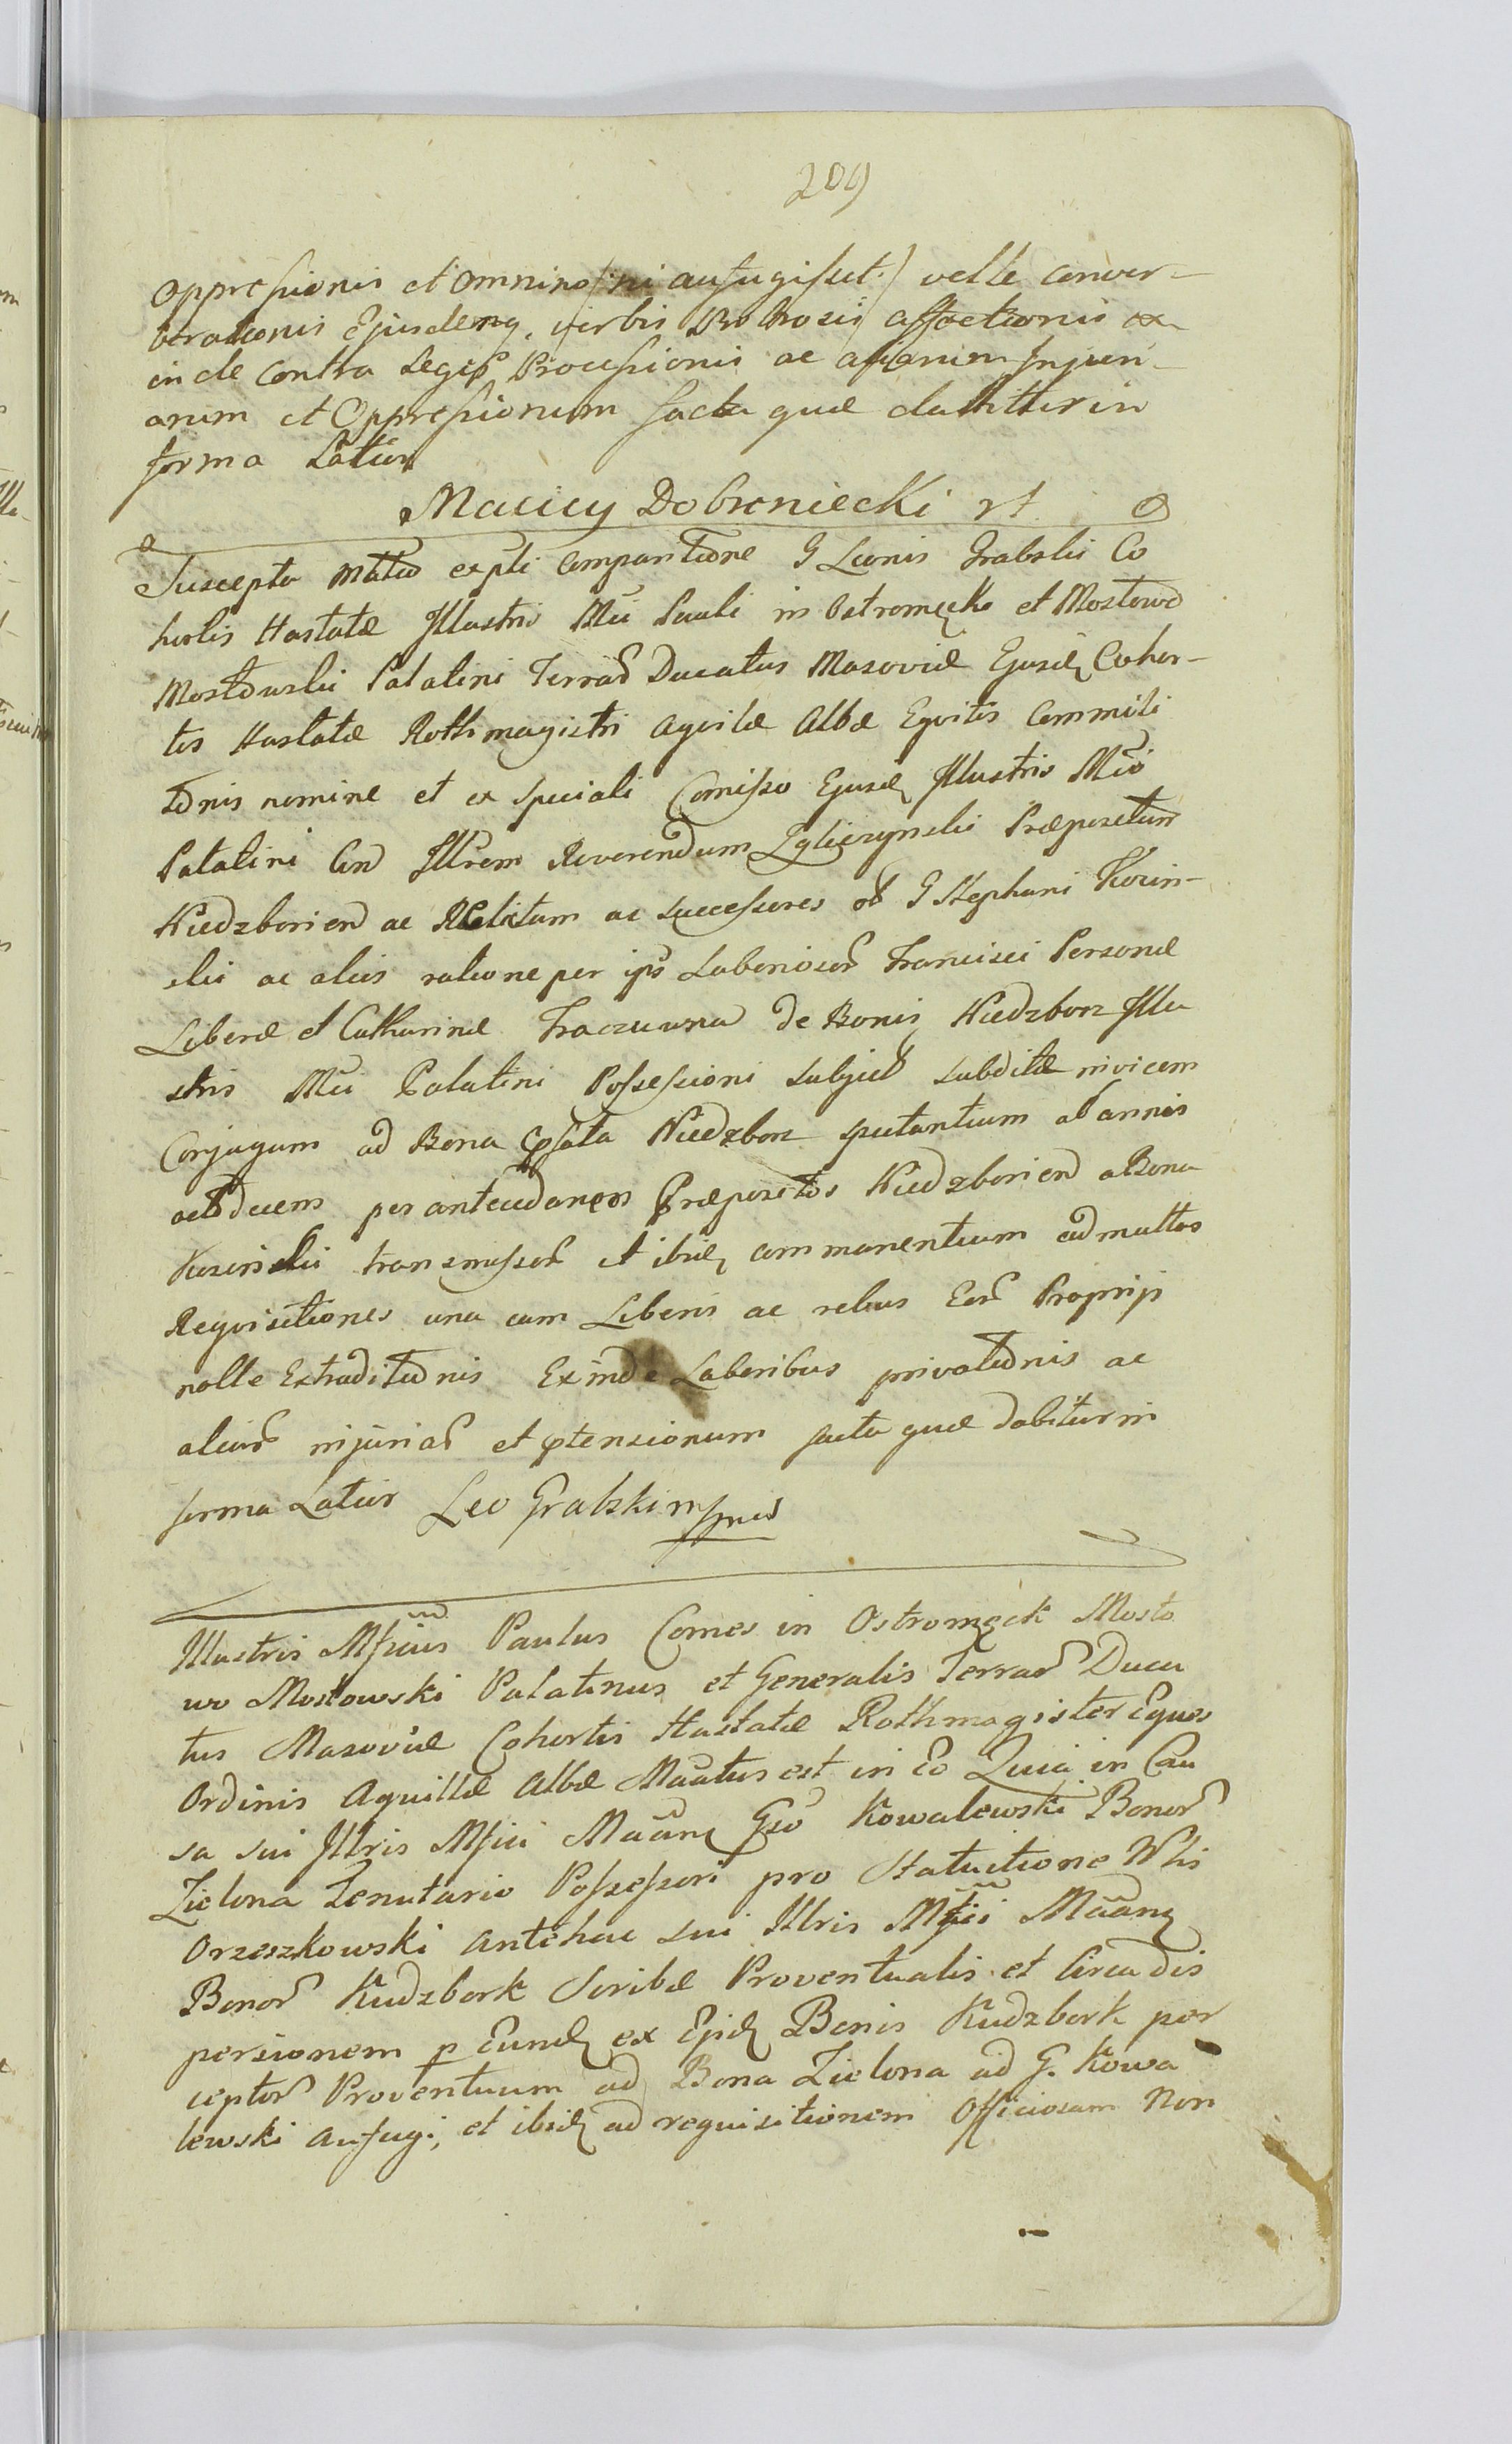 209
oppressionis et omnino /ni aufugisset/ velle conver-
berationis Ejusdemq verbis Probrosis affectionis ex
inde Contra Leges Processionis ac aliarum Injuri-
arum et Oppressionum facta quæ dabitur in
forma Latior
Maciey Dobrzniecki
Suscepta Mãto expti Comparitione G Leonis Grabski Co
hortis Hastatæ Illustris Mci Pauli in Ostromęcko et Mostowo
Mostowski Palatini Terrar Ducatus Masoviæ Ejusd Cohor-
tis Hastatæ Rothmagistri Aqvilæ Albæ Eqvitis Commili
tonis nomine et ex speciali Comisso Ejusd Illustris Mci
Palatini Cnd Illrem Reverendum Zgliczynski Præpositum
Niedzborien ac Relictam ac Successores G Stephani Kozin-
ski ac aliis ratione per ips Laboriosor Francisci Personæ
Liberæ et Catharinæ Traczuwna de Bonis Niedzborz Illu
stris Mci Palatini Possessioni Subject Subditæ invicem
Conjugum ad Bona psata Niedzborz spectantium ab annis
octodecem per antecedaneos Præpositos Niedzborien a Bona
Kozinski transmissor et ibid commanentium ad multas
Reqvisitiones una cum Liberis ac rebus Eor Propriis
nolle Extraditionis Exinde Laboribus privationis ac
aliar injuriar et ptensionum facta quæ dabitur in
forma Latior Leo Grabski mpria
Illustris Mficus Paulus Comes in Ostromęck Mosto
wo Mostowski Palatinus et Generalis Terrar Duca
tus Masoviæ Cohortis Hastatæ Rothmagister Eques
Ordinis Aquillæ Albæ Mãatus est in Eo Quia in Cau
sa sui Illris Mfici Mãang Gso Kowalewski Bonor
Zielona Tenutario Possessori pro Statuitione Nblis
Orzeszkowski antehac sui Illris Mfici Mãang
Bonor Kudzbork Scribæ Proventualis et Circa dis
persionem p Eund ex Ejsd Bonis Kudzbork per
ceptor Proventuum ad Bona Zielona ad G. Kowa
lewski aufugi, et ibid ad requisitionem Officiosam Non